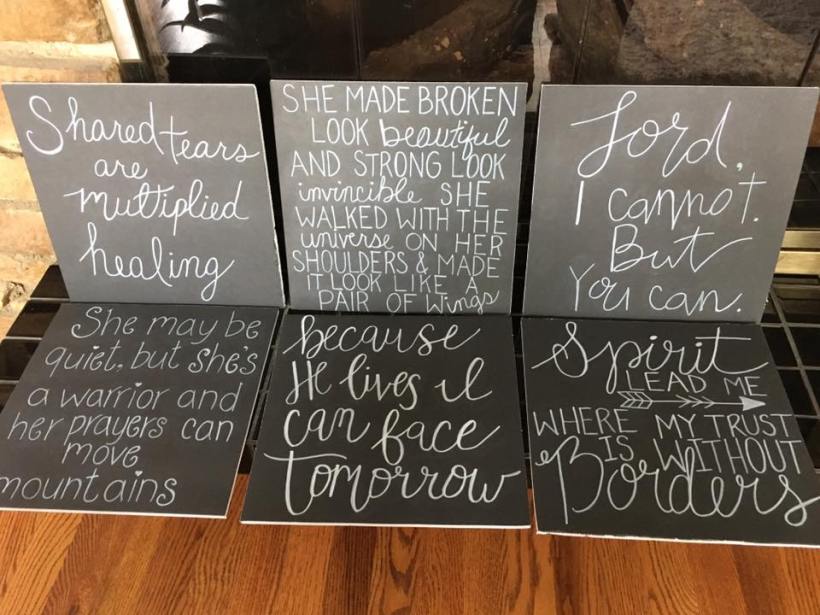 Shared tears
are
multiplied
healing
SHE MADE BROKEN
LOOK beautiful
AND STRONG LOOK
invincible SHE
WALKED WITH THE
universe ON HER
SHOULDERS & MADE
IT LOOK LIKE A
PAIR OF wings
Lord,
I cannot.
But
You can.
She may be
quiet, but she's
a warrior and
her prayers can
move
mountains
because
He lives I
can face
tomorrow
Spirit
LEAD ME
WHERE MY TRUST
IS WITHOUT
Borders